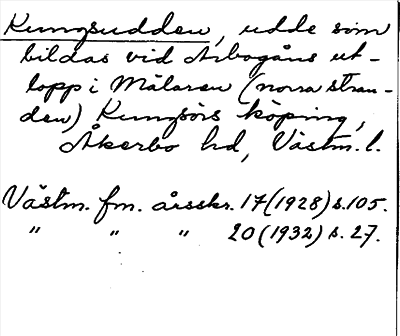 Kungsudden, udde som
bildas vid Arbogaåns ut-
lopp i Mälaren (norra stran-
den) Kungsörs köping,
Åkerbo hd, Västm. l.
Västm. fm. årsskr. 17 (1928) s. 105.
" " " 20 (1932) s. 27.